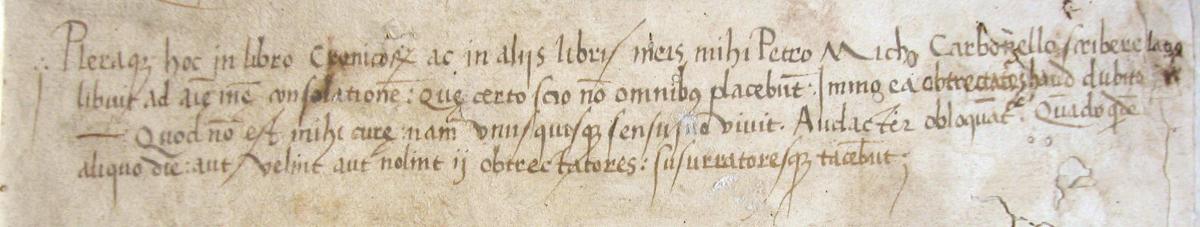 Pleraqꝫ hoc in libro Cronicoꝝ ac in aliis libris meis mihi Petro Mich. Carbonello scribere
libuit ad aĩe mẽ consolationẽ: quę certo scio nõ omnibꝰ placebũt. Immo ea haud dubito
Quod nõ est mihi curę: nam̃ unusquisqꝫ sensu suo vivit. Audacter obloquãt̃. Quãdoqde
aliquo die: aut velint aut nolint ij obtrectatores: susurratoresqꝫ tacebũt;